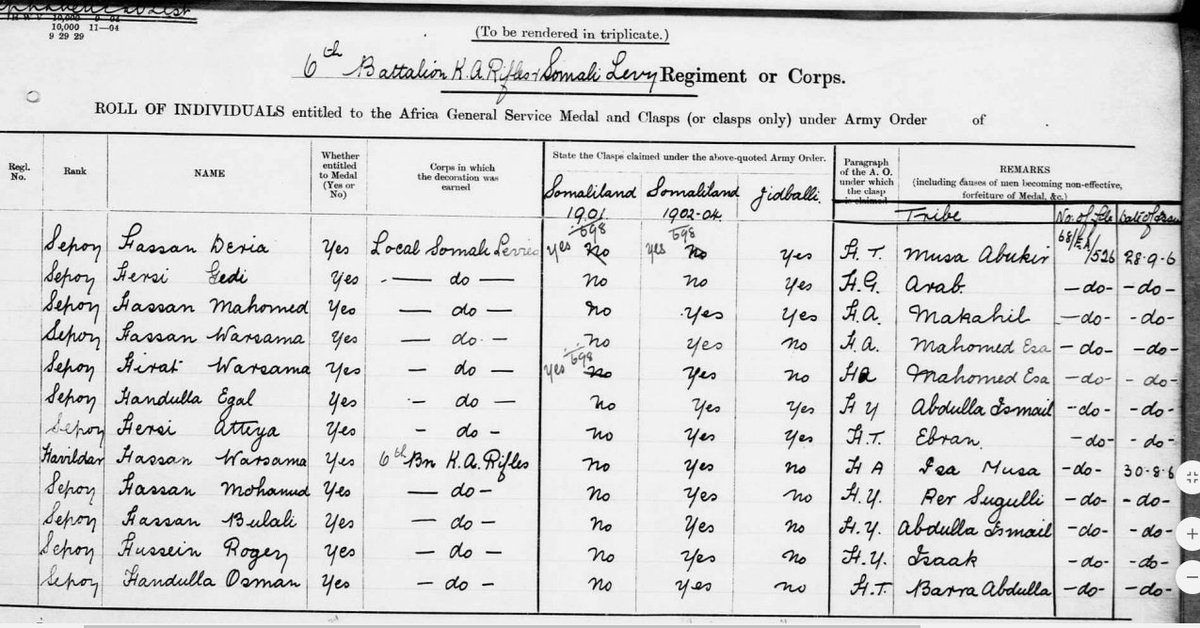 10,000 11—04
9 29 29
(To be rendered in triplicate.)
6th Battalion K.A. Rifles & Somali Levy Regiment or Corps.
ROLL OF INDIVIDUALS entitled to the Africa General Service Medal and Clasps (or clasps only) under Army Order of .
Regl. No. Rank NAME Whether entitled to Medal (Yes or No) Corps in which the decoration was earned State the Clasps claimed under the above-quoted Army Order. Paragraph of the A. O. under which the clasp is claimed REMARKS (including causes of men becoming non-effective, forfeiture of Medal, &c.)
Somaliland 1901 Somaliland 1902-04 Jidballi. Tribe No. of Date of
68/ /526
Sepoy Hassan Deria Yes Local Somali Levies yes 698 No yes 698 No Yes H. T. Musa Abukir 28-9-6
Sepoy Hersi Gedi Yes — do — No No Yes H.G. Arab. -do- -do-
Sepoy Hassan Mahomed Yes — do — No Yes Yes H.A. Makahil -do- -do-
Sepoy Hassan Warsama Yes — do — No Yes No H.A. Mahomed Esa -do- -do-
Sepoy Hirat Warsama Yes — do — yes 698 No Yes No HA Mahomed Esa -do- -do-
Sepoy Handulla Egal Yes — do — No Yes Yes H Y Abdulla Ismail -do- -do-
Sepoy Hersi Attiya Yes — do — No Yes Yes H.T. Ebran. -do- -do-
Havildar Hassan Warsama Yes 6th Bn K.A. Rifles No Yes No H A Isa Musa -do- 30-8-6
Sepoy Hassan Mohamud Yes — do — No Yes No H.Y. Rer Sugulli -do- -do-
Sepoy Hassan Bulali Yes — do — No Yes No H.Y. Abdulla Ismail -do- -do-
Sepoy Hussein Rogey Yes — do — No Yes No H.Y. Isaak -do- -do-
Sepoy Handulla Osman Yes — do — No Yes No H.T. Barra Abdulla -do- -do-